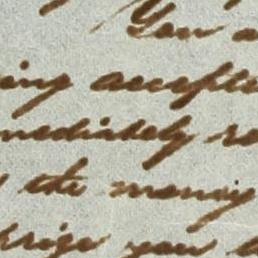 You a
ing accepte
mediately re
the money
rize you